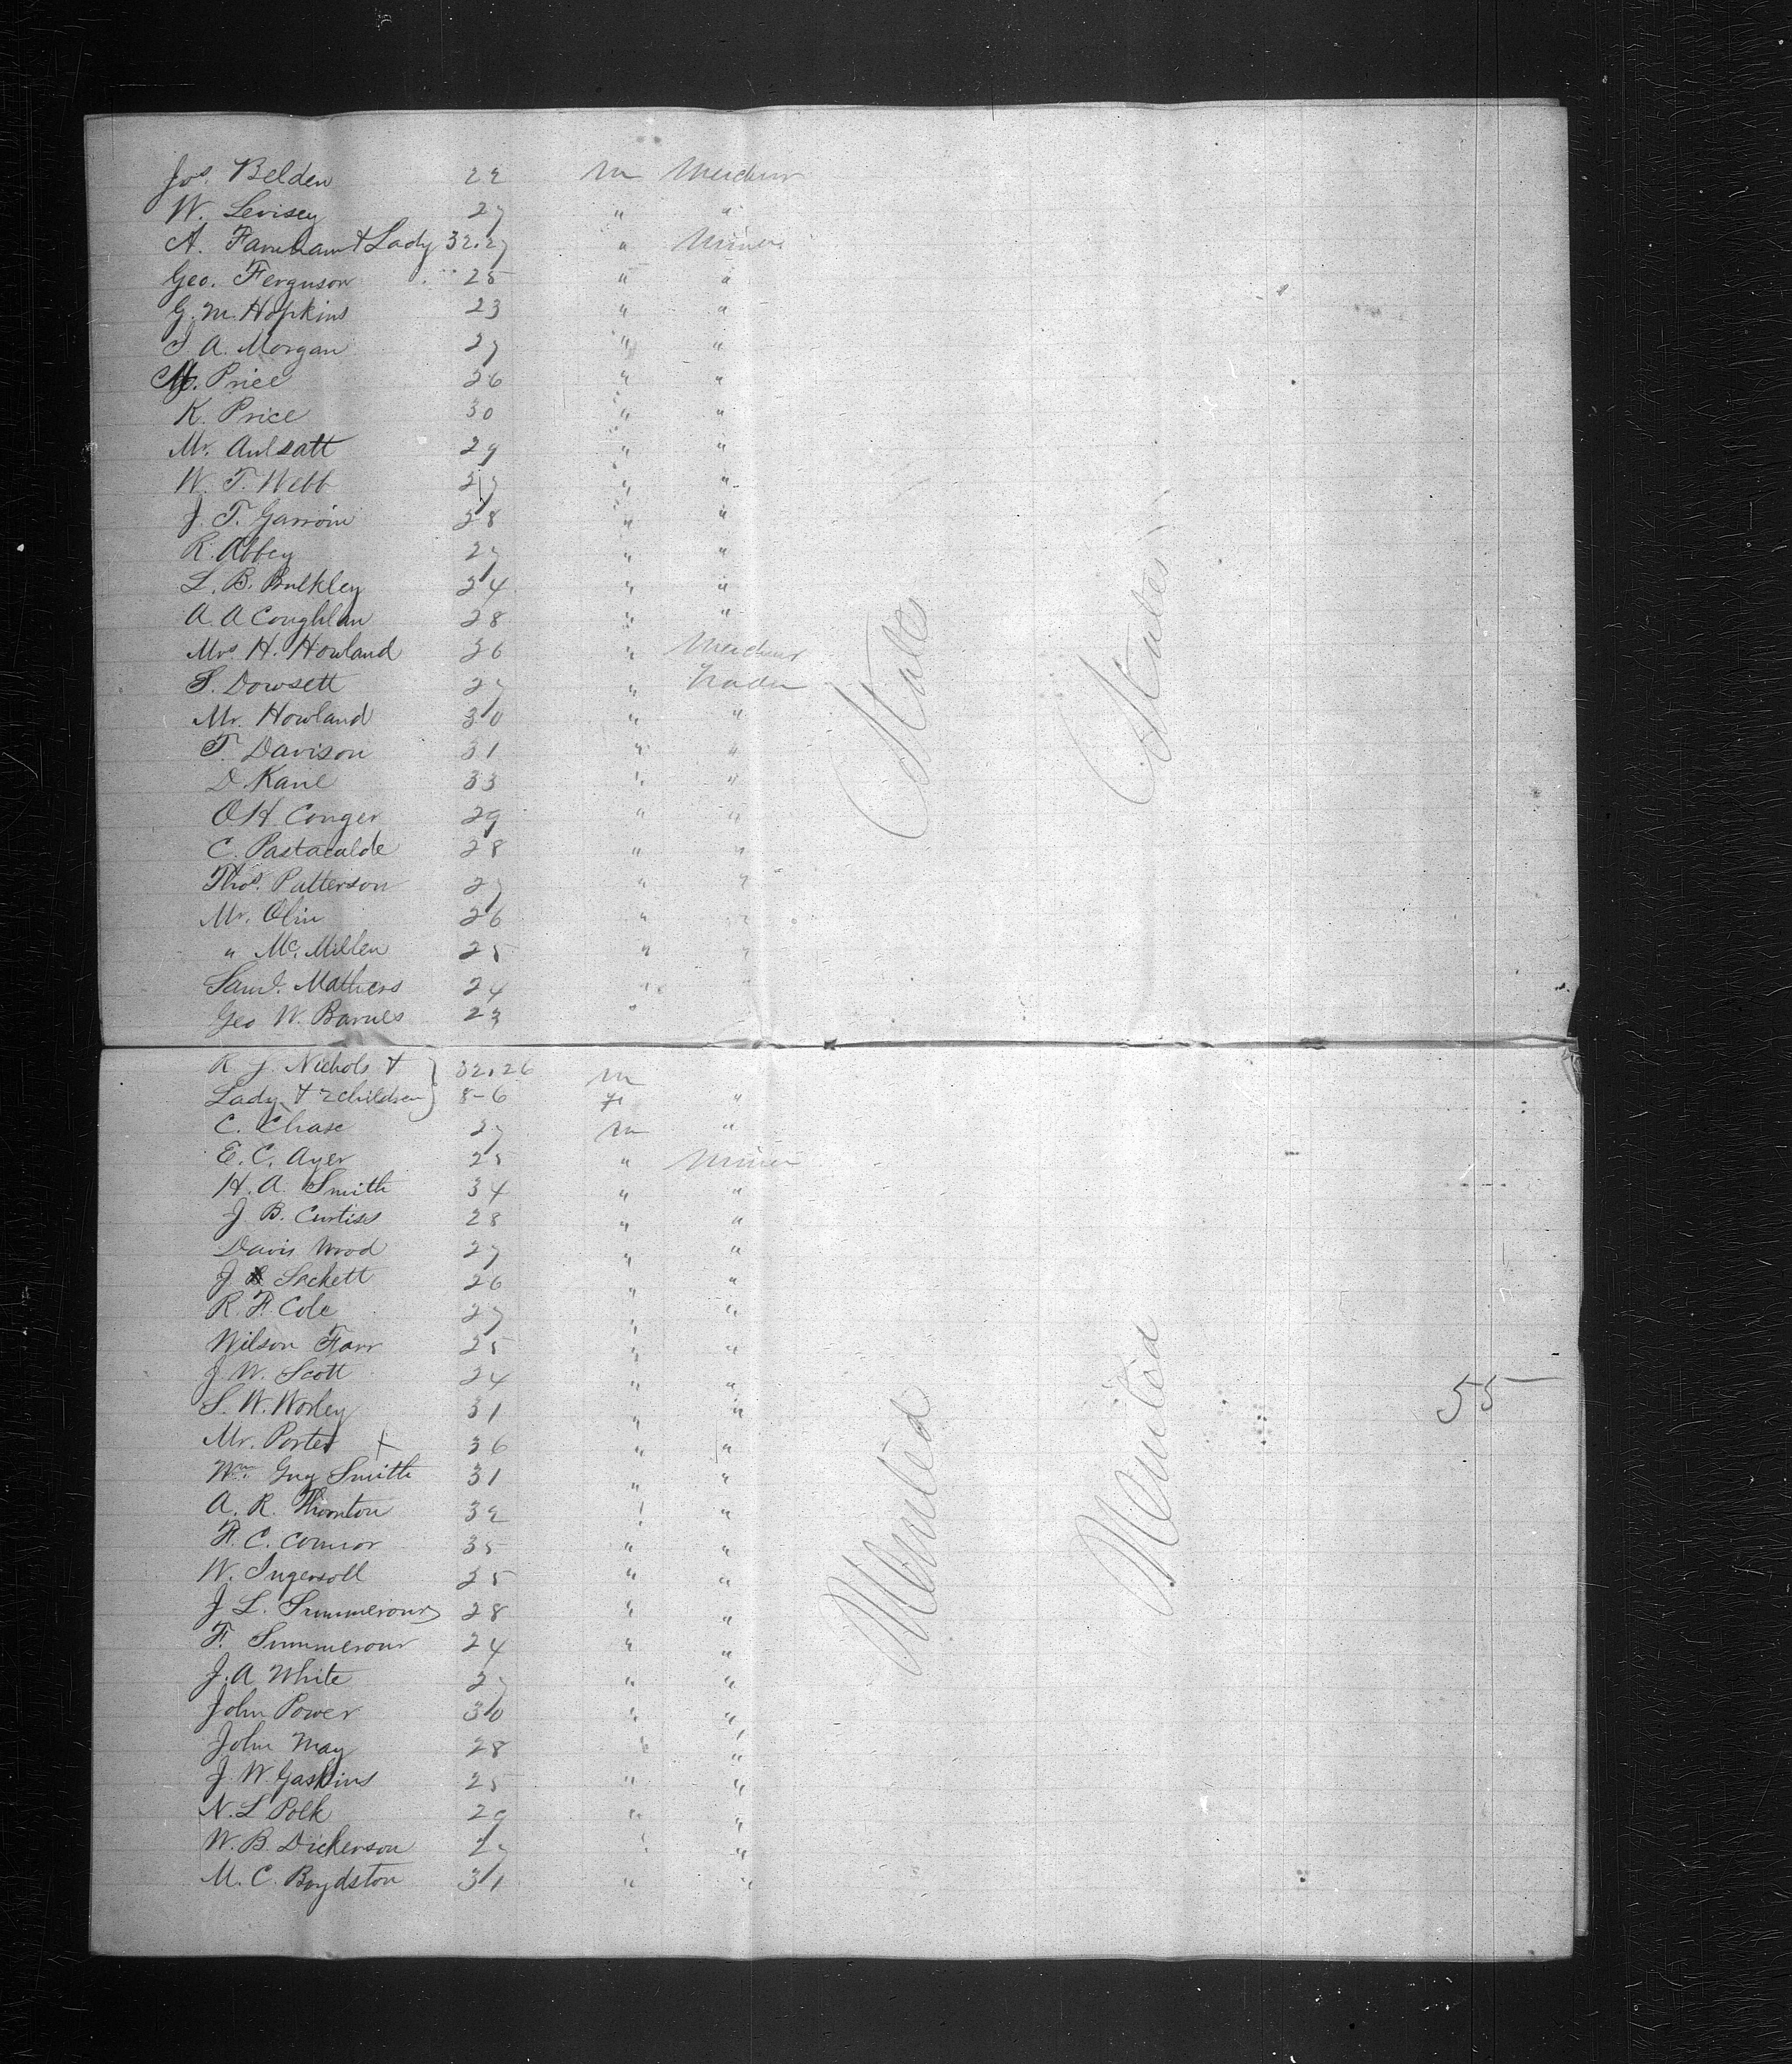 Jos. Belden 22 m Merchnr
W. Levisey 27 " "
A. Farnham & Lady 32.27 " Miner
Geo. Ferguson 25 " "
G. M. Hopkins 23 " "
J A. Morgan 27 " "
M. Price 26 " "
K. Price 30 " "
Mr. Aulsatt 29 " "
W. T. Webb 27 " "
J. T. Garroin 28 " "
R. Abbey 27 " "
L. B. Bulkley 24 " "
A. A Coughlan 28 " "
Mrs. H. Howland 36 " Merchnr
S. Dowsett 27 " Trader
Mr. Howland 30 " "
T. Davison 31 " "
D. Kane 33 " "
O H. Conger 29 " "
C. Pastacalde 28 " "
Thos. Patterson 27 " "
Mr. Olin 26 " "
" Mc. Millen 25 " "
Saml. Mathers 24 " "
Geo W. Barnes 23 "
R J. Nichols & } 32.26 m
Lady & 2 children } 8-6 f "
C. Chase 27 m "
E. C. Ayer 25 " Miner
H. A. Smith 34 " "
J B. Curtiss 28 " "
Davis Wood 27 " "
J Sackett 26 " "
R. F. Cole 27 " "
Wilson Farr 25 " "
J W. Scott 24 " "
S. W. Worley 31 " "
Mr. Porter 36 " "
Wm. Guy Smith 31 " "
A. R. Thornton 32 " "
F. C. Connor 35 " "
W. Ingersoll 25 " "
J L. Summerour 28 " "
F. Summerour 24 " "
J. A White 27 " "
John Power 30 " "
John May 28 " "
J. W. Gaskins 25 " "
N. L Polk 29 " "
W. B. Dickerson 27 " "
M. C. Boydston 31 " "
States
States
55